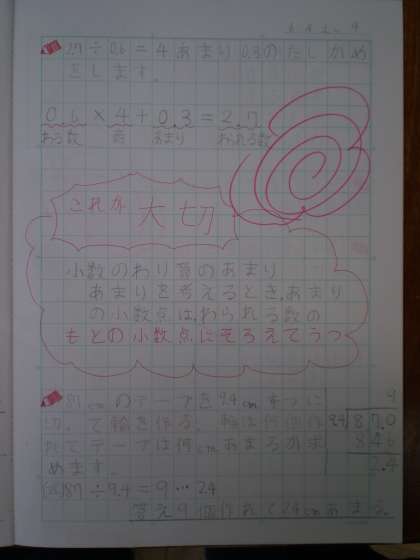 2.7÷0.6=4あまり0.3のたしかめ
をします。
0.6×4+0.3=2.7
わる数 商 あまり わられる数
これが大切
小数のわり算のあまり
あまりを考えるとき、あまり
の小数点は、わられる数の
もとの小数点にそろえてうつ
87cmのテープを9.4cmずつに
切って輪を作る。輪は何個作
れてテープは何cmあまるかもと
めます。
9
9.4 87.0
84.6
2.4
(式)87÷9.4=9…2.4
答え9個作れて2.4cmあまる。